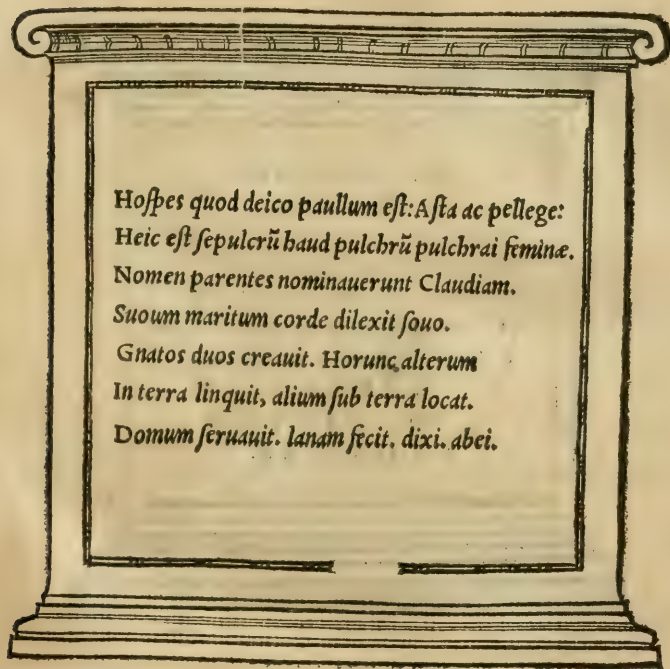 Hoſpes quod deico paullum eſt: Aſta ac pellege:
Heic eſt ſepulcrū haud pulchrū pulchrai feminæ.
Nomen parentes nominauerunt Claudiam.
Suoum maritum corde dilexit ſouo.
Gnatos duos creauit. Horunc alterum
In terra linquit, alium ſub terra locat.
Domum ſeruauit. lanam fecit. dixi. abei.